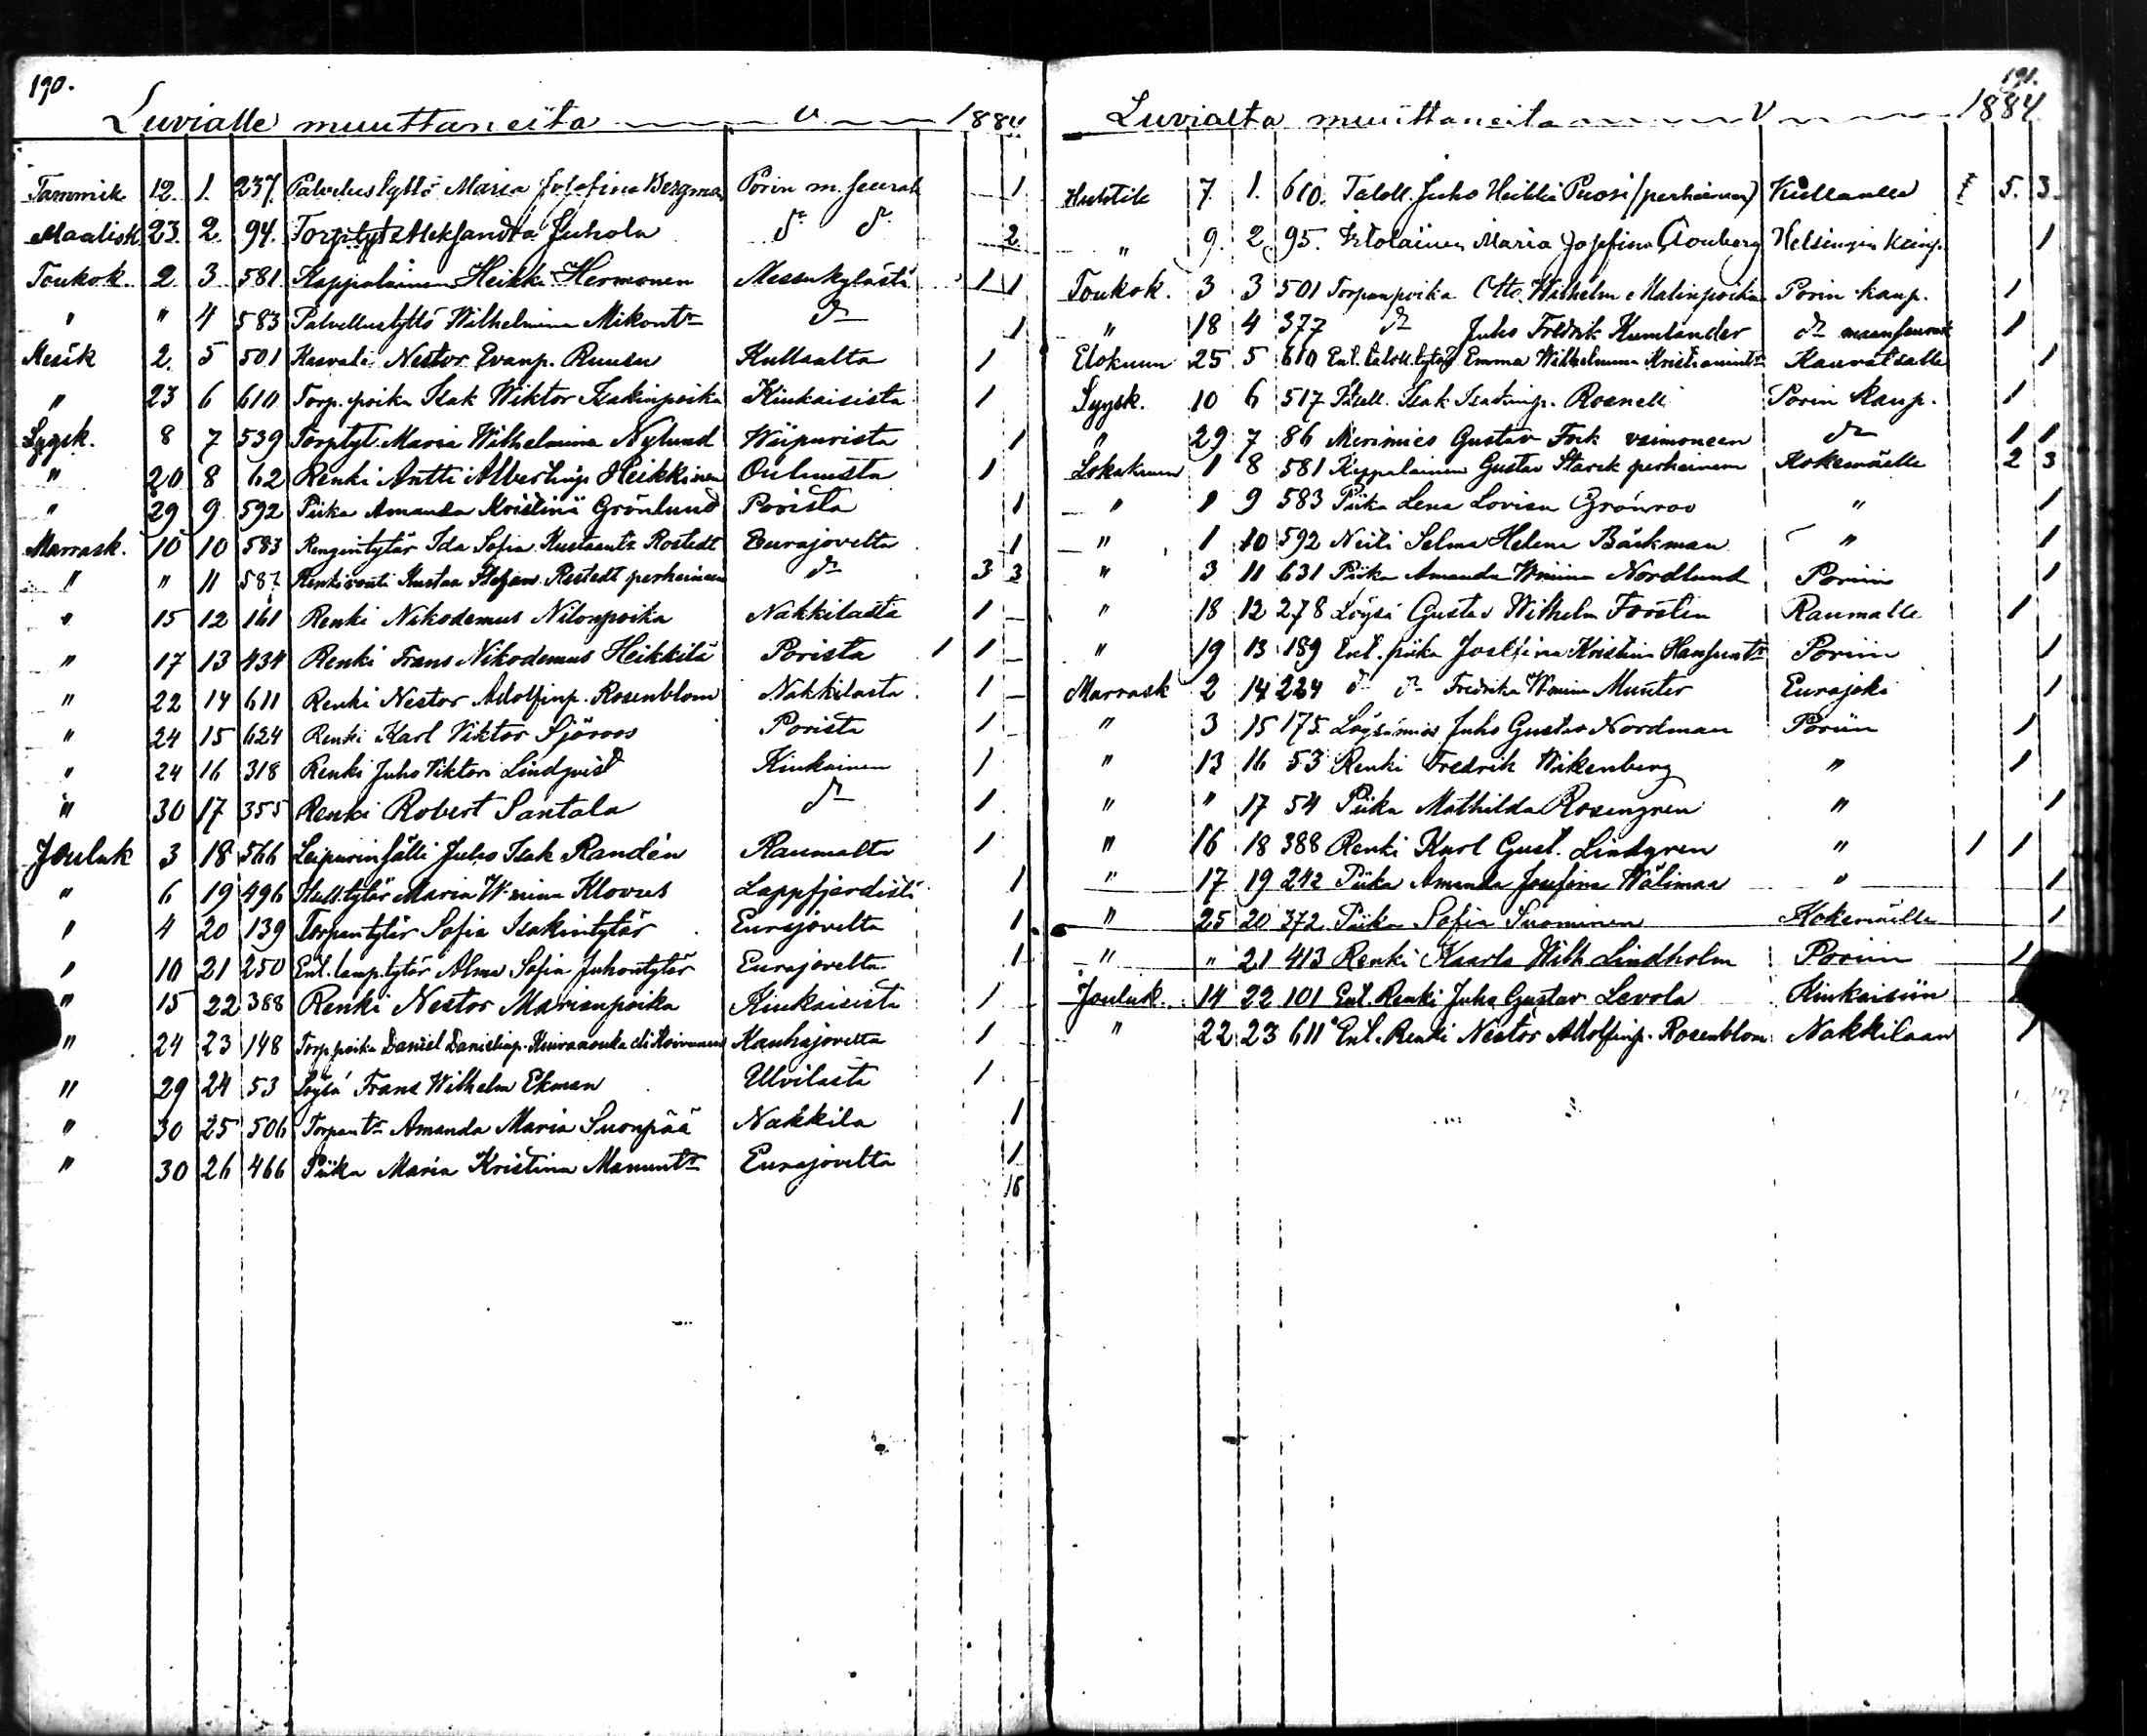 190.
Luvialle muuttaneita v. 1884
Tammik. 12. 1. 237. Palvelustyttö Maria Josefina Bergman Porin m. seurak 1
Maalisk. 23. 2. 94. Torp.tyt. Aleksandra Juhola do do 2
Toukok. 2. 3. 581 Kappalainen Heikki Hermonen Messukylästä 1 1
" " 4 583 Palvellustyttö Wilhelmina Mikontr do 1
Kesäk 2. 5 501 Kasvati Nestor Evanp. Ruusu Kullaalta 1
" 23 6 610 Torp. poika Isak Wiktor Isakinpoika Kiukaisista 1
Syysk. 8 7 539 Torp.tyt. Maria Wilhelmina Nylund Wiipurista 1
" 20 8 62 Renki Antti Albertinp. Heikkinen Oulusta 1
" 29 9 592 Piika Amanda Kristiina Grönlund Porista 1
Marrask. 10 10 583 Rengintytär Ida Sofia Kustaantr Rostedt Eurajoelta 1
" " 11 587 Renkivouti Kustaa Stefan Rostedt perheineen do 3 3
" 15 12 161 Renki Nikodemus Nilonpoika Nakkilasta 1
" 17 13 434 Renki Frans Nikodemus Heikkilä Porista 1 1
" 22 14 611 Renki Nestor Adolfinp. Rosenblom Nakkilasta 1
" 24 15 624 Renki Karl Viktor Sjöroos Porista 1
" 24 16 318 Renki Juho Viktori Lindqvist Kiukainen 1
" 30 17 355 Renki Robert Santala do 1
Jouluk 3 18 566 Leipurinsälli Juho Isak Randén Raumalta 1
" 6 19 496 tytär Maria W:mina Klovus Lappfjärdistä 1
" 4 20 139 Torpantytär Sofia Isakintytär Eurajoelta 1
" 10 21 250 Ent. lamp.tytär Alma Sofia Juhontytär Eurajoelta 1
" 15 22 388 Renki Nestor Marianpoika Kiukaisista 1
" 24 23 148 Torp.poika Daniel Danielinp. Koivunen Kauhajoelta 1
" 29 24 53 Löysä Frans Wilhelm Ekman Ulvilasta 1
" 30 25 506 Torpantr Amanda Maria Suonpää Nakkila 1
" 30 26 466 Piika Maria Kristina Manuntr Eurajoelta 1
16
191.
Luvialta muuttaneita v 1884.
Huhtik 7. 1. 610. Taloll. Juho Heikki Puosi (perheineen) Kullaalle 5. 3.
" 9. 2. 95. Itsolainen Maria Josefina Helsingin kaup. 1
Toukok. 3 3 501 Torpanpoika Otto Wilhelm Matinpoika Porin kaup. 1
" 18 4 377 do Juho Fredrik Kumlander do maaseurak 1
Elokuun 25 5 610 Ent. taloll. tytär Emma Wilhelmina Kristianintr Kauvatsalle 1
Syysk. 10 6 517 Itsell. Isak Isakinp. Rosnell Porin kaup. 1
" 29 7 86 Merimies Gustav Fork vaimoneen do 1 1
Lokakuun 1 8 581 Kappalainen Gustav Starck perheineen Kokemäelle 2 3
" 1 9 583 Piika Lena Lovisa Grönroos " 1
" 1 10 592 Neiti Selma Helena Bäckman " 1
" 3 11 631 Piika Amanda W:mina Nordlund Poriin 1
" 18 12 278 Löysä Gustav Wilhelm Forstén Raumalle 1
" 19 13 189 Ent. piika Josefina Kristina Hansuntr Poriin 1
Marrask 2 14 224 do do Fredrika W:mina Munter Eurajoki 1
" 3 15 175 Löysämies Juho Gustav Nordman Poriin 1
" 13 16 53 Renki Fredrik Wikenberg " 1
" " 17 54 Piika Mathilda Rosengren " 1
" 16 18 388 Renki Karl Gust. Lindgren " 1 1
" 17 19 242 Piika Amanda Josefina Wälimaa " 1
" 25 20 372 Piika Sofia Suominen Kokemäelle 1
" " 21 413 Renki Kaarlo Wilh. Lindholm Poriin 1
Jouluk. 14 22 101 Ent. Renki Juho Gustav Levola Kiukaisiin
" 22 23 611 Ent. Renki Nestor Adolfinp. Rosenblom Nakkilaan 1